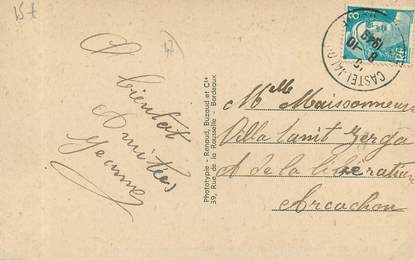 15 F
A
bientôt
Amitiés
Jeanne
Phototypie - Renaud, Buzaud et Cie
39, Rue de la Rousselle - Bordeaux
CASTELJALOUX
8-10
1949
Mlle Maissonneuve
Villa Tanit Zerga
A de la libération
Arcachon